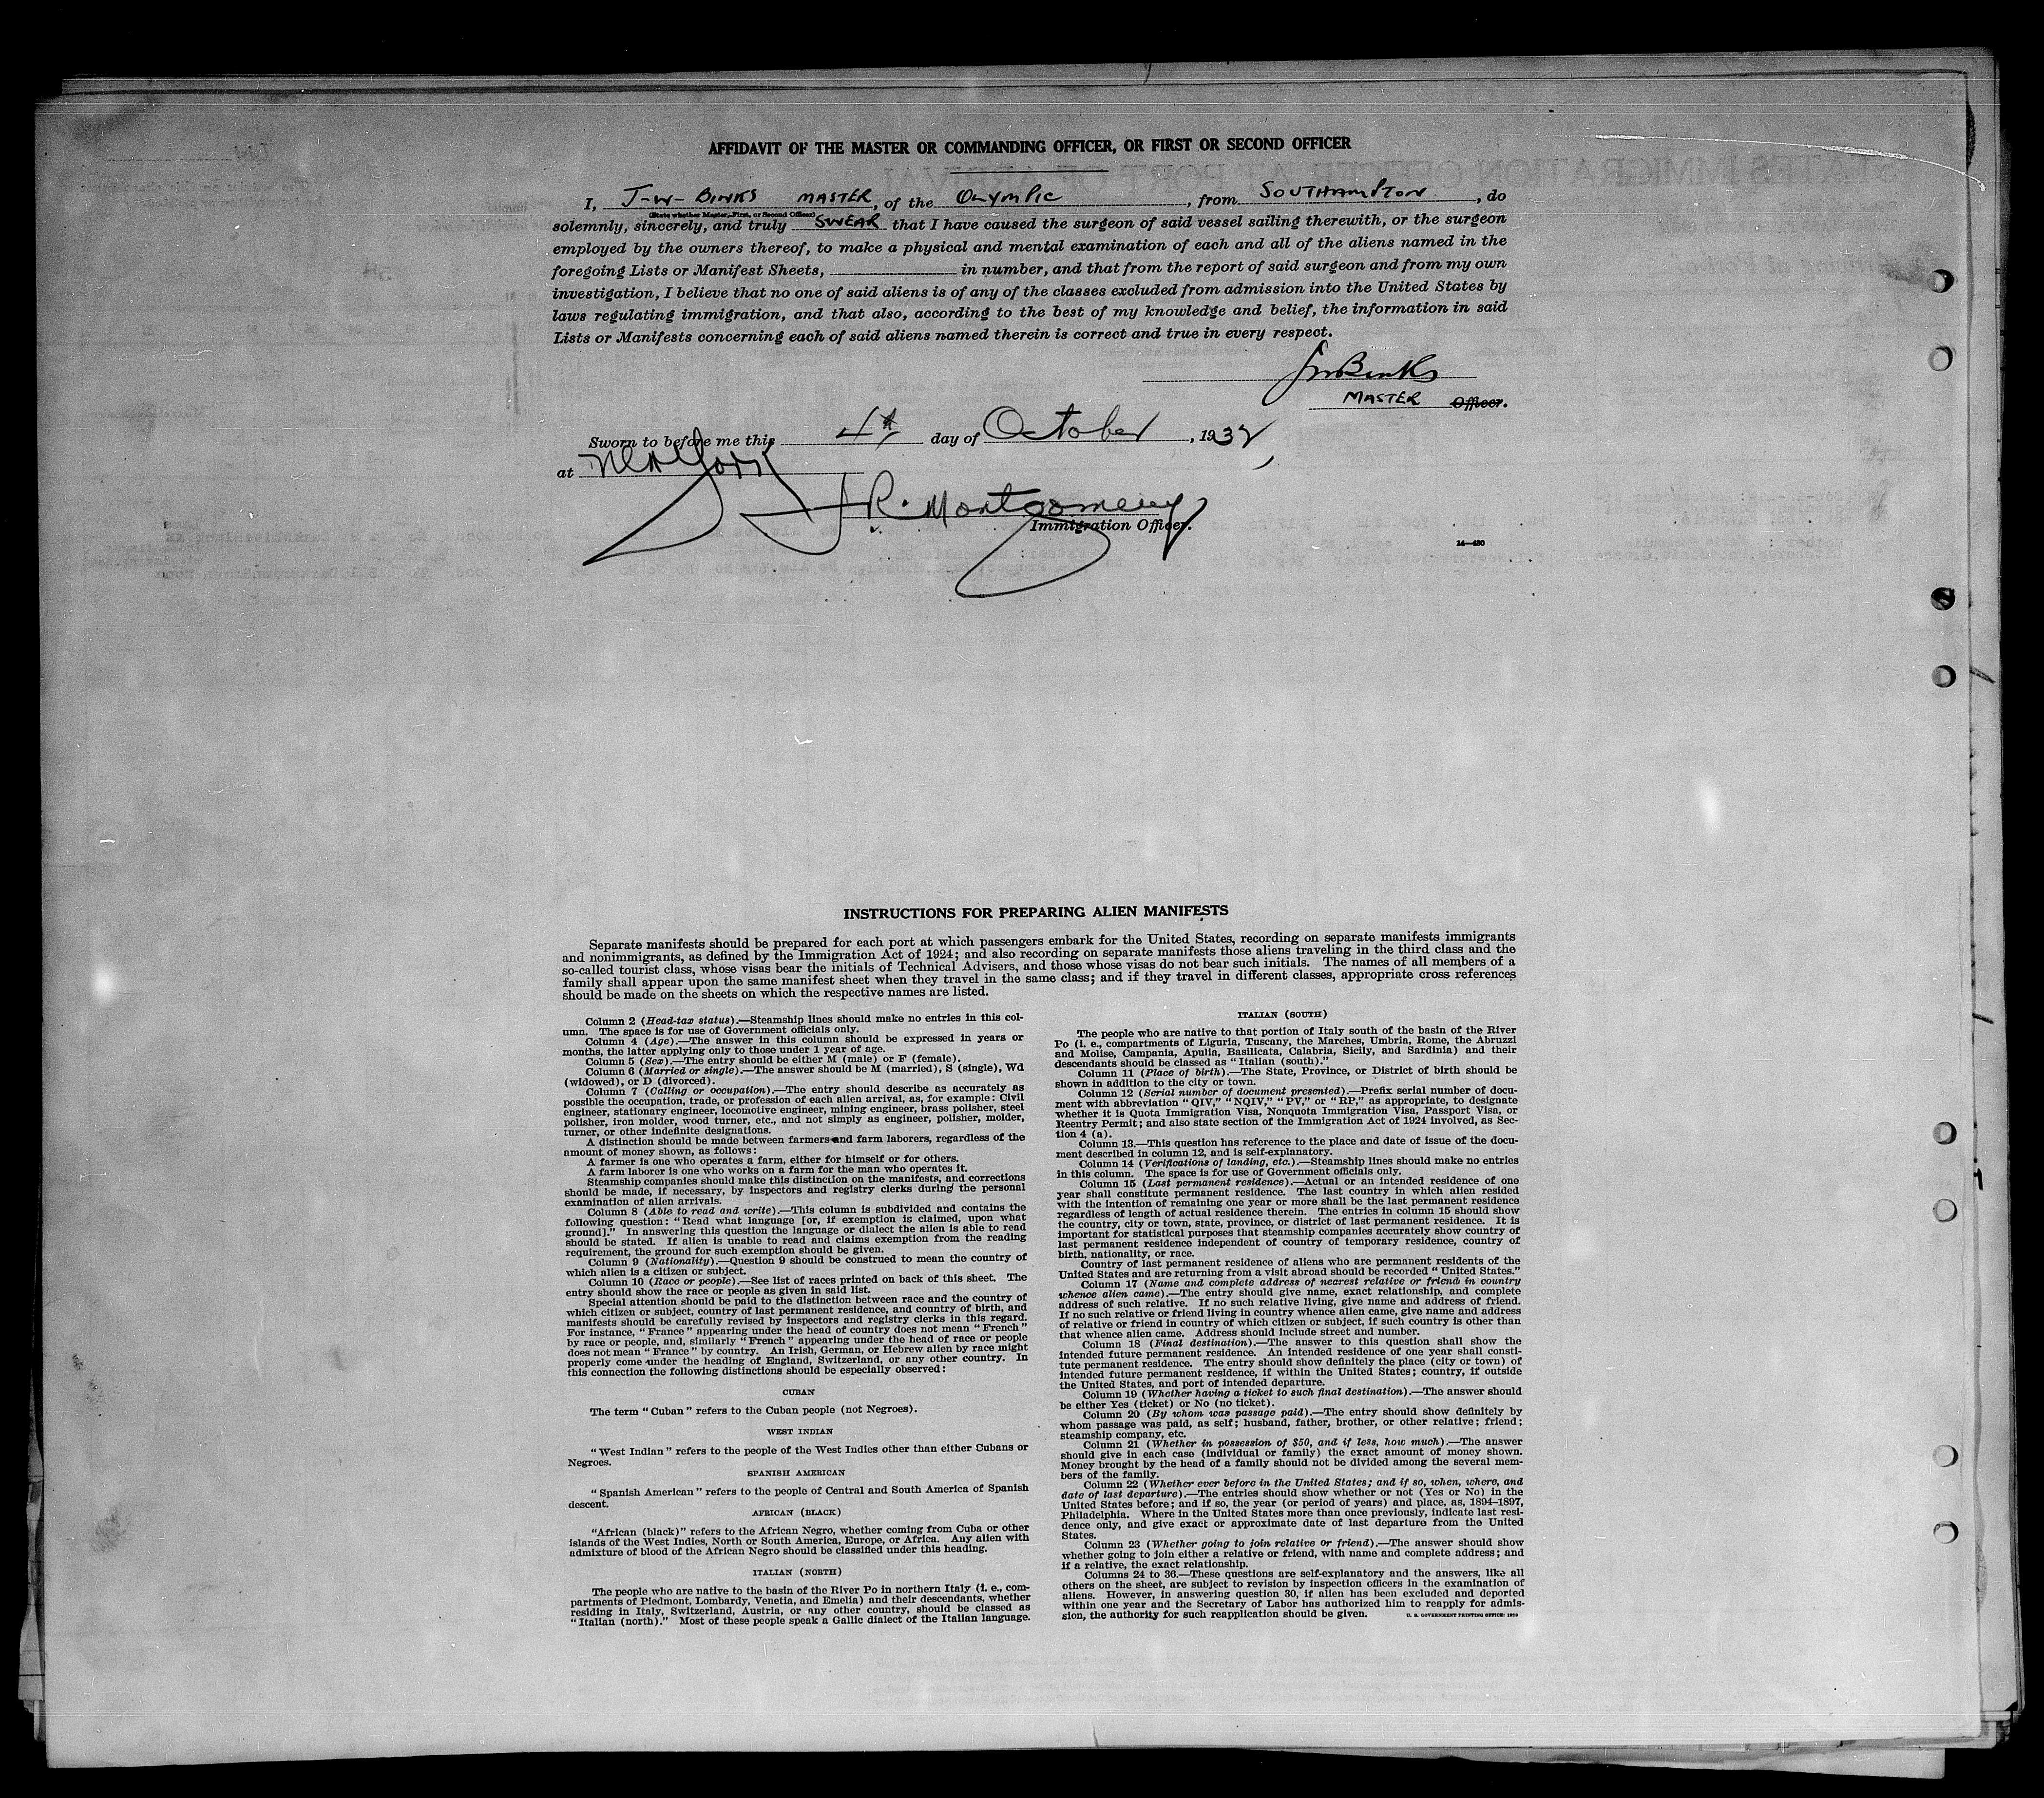 AFFIDAVIT OF THE MASTER OR COMMANDING OFFICER, OR FIRST OR SECOND OFFICER
I, J-W- BINKS MASTER, of the OLYMPIC, from SOUTHAMPTON, do
(State whether Master, First, or Second Officer)
solemnly, sincerely, and truly SWEAR that I have caused the surgeon of said vessel sailing therewith, or the surgeon
employed by the owners thereof, to make a physical and mental examination of each and all of the aliens named in the
foregoing Lists or Manifest Sheets, in number, and that from the report of said surgeon and from my own
investigation, I believe that no one of said aliens is of any of the classes excluded from admission into the United States by
laws regulating immigration, and that also, according to the best of my knowledge and belief, the information in said
Lists or Manifests concerning each of said aliens named therein is correct and true in every respect.
JW Binks
MASTER Officer.
Sworn to before me this 4th day of October, 1932
at New York
R. Montgomery
Immigration Officer.
14—430
INSTRUCTIONS FOR PREPARING ALIEN MANIFESTS
Separate manifests should be prepared for each port at which passengers embark for the United States, recording on separate manifests immigrants
and nonimmigrants, as defined by the Immigration Act of 1924; and also recording on separate manifests those aliens traveling in the third class and the
so-called tourist class, whose visas bear the initials of Technical Advisers, and those whose visas do not bear such initials. The names of all members of a
family shall appear upon the same manifest sheet when they travel in the same class; and if they travel in different classes, appropriate cross references
should be made on the sheets on which the respective names are listed.
Column 2 (Head-tax status).—Steamship lines should make no entries in this col-
umn. The space is for use of Government officials only.
Column 4 (Age).—The answer in this column should be expressed in years or
months, the latter applying only to those under 1 year of age.
Column 5 (Sex).—The entry should be either M (male) or F (female).
Column 6 (Married or single).—The answer should be M (married), S (single), Wd
(widowed), or D (divorced).
Column 7 (Calling or occupation).—The entry should describe as accurately as
possible the occupation, trade, or profession of each alien arrival, as, for example: Civil
engineer, stationary engineer, locomotive engineer, mining engineer, brass polisher, steel
polisher, iron molder, wood turner, etc., and not simply as engineer, polisher, molder,
turner, or other indefinite designations.
A distinction should be made between farmers and farm laborers, regardless of the
amount of money shown, as follows:
A farmer is one who operates a farm, either for himself or for others.
A farm laborer is one who works on a farm for the man who operates it.
Steamship companies should make this distinction on the manifests, and corrections
should be made, if necessary, by inspectors and registry clerks during the personal
examination of alien arrivals.
Column 8 (Able to read and write).—This column is subdivided and contains the
following question: "Read what language [or, if exemption is claimed, upon what
ground]." In answering this question the language or dialect the alien is able to read
should be stated. If alien is unable to read and claims exemption from the reading
requirement, the ground for such exemption should be given.
Column 9 (Nationality).—Question 9 should be construed to mean the country of
which alien is a citizen or subject.
Column 10 (Race or people).—See list of races printed on back of this sheet. The
entry should show the race or people as given in said list.
Special attention should be paid to the distinction between race and the country of
which citizen or subject, country of last permanent residence, and country of birth, and
manifests should be carefully revised by inspectors and registry clerks in this regard.
For instance, "France" appearing under the head of country does not mean "French"
by race or people, and, similarly "French" appearing under the head of race or people
does not mean "France" by country. An Irish, German, or Hebrew alien by race might
properly come under the heading of England, Switzerland, or any other country. In
this connection the following distinctions should be especially observed:
CUBAN
The term "Cuban" refers to the Cuban people (not Negroes).
WEST INDIAN
"West Indian" refers to the people of the West Indies other than either Cubans or
Negroes.
SPANISH AMERICAN
"Spanish American" refers to the people of Central and South America of Spanish
descent.
AFRICAN (BLACK)
"African (black)" refers to the African Negro, whether coming from Cuba or other
islands of the West Indies, North or South America, Europe, or Africa. Any alien with
admixture of blood of the African Negro should be classified under this heading.
ITALIAN (NORTH)
The people who are native to the basin of the River Po in northern Italy (i. e., com-
partments of Piedmont, Lombardy, Venetia, and Emelia) and their descendants, whether
residing in Italy, Switzerland, Austria, or any other country, should be classed as
"Italian (north)." Most of these people speak a Gallic dialect of the Italian language.
ITALIAN (SOUTH)
The people who are native to that portion of Italy south of the basin of the River
Po (i. e., compartments of Liguria, Tuscany, the Marches, Umbria, Rome, the Abruzzi
and Molise, Campania, Apulia, Basilicata, Calabria, Sicily, and Sardinia) and their
descendants should be classed as "Italian (south)."
Column 11 (Place of birth).—The State, Province, or District of birth should be
shown in addition to the city or town.
Column 12 (Serial number of document presented).—Prefix serial number of docu-
ment with abbreviation "QIV," "NQIV," "PV," or "RP," as appropriate, to designate
whether it is Quota Immigration Visa, Nonquota Immigration Visa, Passport Visa, or
Reentry Permit; and also state section of the Immigration Act of 1924 involved, as Sec-
tion 4 (a).
Column 13.—This question has reference to the place and date of issue of the docu-
ment described in column 12, and is self-explanatory.
Column 14 (Verifications of landing, etc.).—Steamship lines should make no entries
in this column. The space is for use of Government officials only.
Column 15 (Last permanent residence).—Actual or an intended residence of one
year shall constitute permanent residence. The last country in which alien resided
with the intention of remaining one year or more shall be the last permanent residence
regardless of length of actual residence therein. The entries in column 15 should show
the country, city or town, state, province, or district of last permanent residence. It is
important for statistical purposes that steamship companies accurately show country of
last permanent residence independent of country of temporary residence, country of
birth, nationality, or race.
Country of last permanent residence of aliens who are permanent residents of the
United States and are returning from a visit abroad should be recorded "United States."
Column 17 (Name and complete address of nearest relative or friend in country
whence alien came).—The entry should give name, exact relationship, and complete
address of such relative. If no such relative living, give name and address of friend.
If no such relative or friend living in country whence alien came, give name and address
of relative or friend in country of which citizen or subject, if such country is other than
that whence alien came. Address should include street and number.
Column 18 (Final destination).—The answer to this question shall show the
intended future permanent residence. An intended residence of one year shall consti-
tute permanent residence. The entry should show definitely the place (city or town) of
intended future permanent residence, if within the United States; country, if outside
the United States, and port of intended departure.
Column 19 (Whether having a ticket to such final destination).—The answer should
be either Yes (ticket) or No (no ticket).
Column 20 (By whom was passage paid).—The entry should show definitely by
whom passage was paid, as self; husband, father, brother, or other relative; friend;
steamship company, etc.
Column 21 (Whether in possession of $50, and if less, how much).—The answer
should give in each case (individual or family) the exact amount of money shown.
Money brought by the head of a family should not be divided among the several mem-
bers of the family.
Column 22 (Whether ever before in the United States; and if so, when, where, and
date of last departure).—The entries should show whether or not (Yes or No) in the
United States before; and if so, the year (or period of years) and place, as, 1894–1897,
Philadelphia. Where in the United States more than once previously, indicate last resi-
dence only, and give exact or approximate date of last departure from the United
States.
Column 23 (Whether going to join relative or friend).—The answer should show
whether going to join either a relative or friend, with name and complete address; and
if a relative, the exact relationship.
Columns 24 to 36.—These questions are self-explanatory and the answers, like all
others on the sheet, are subject to revision by inspection officers in the examination of
aliens. However, in answering question 30, if alien has been excluded and deported
within one year and the Secretary of Labor has authorized him to reapply for admis-
sion, the authority for such reapplication should be given.
U. S. GOVERNMENT PRINTING OFFICE: